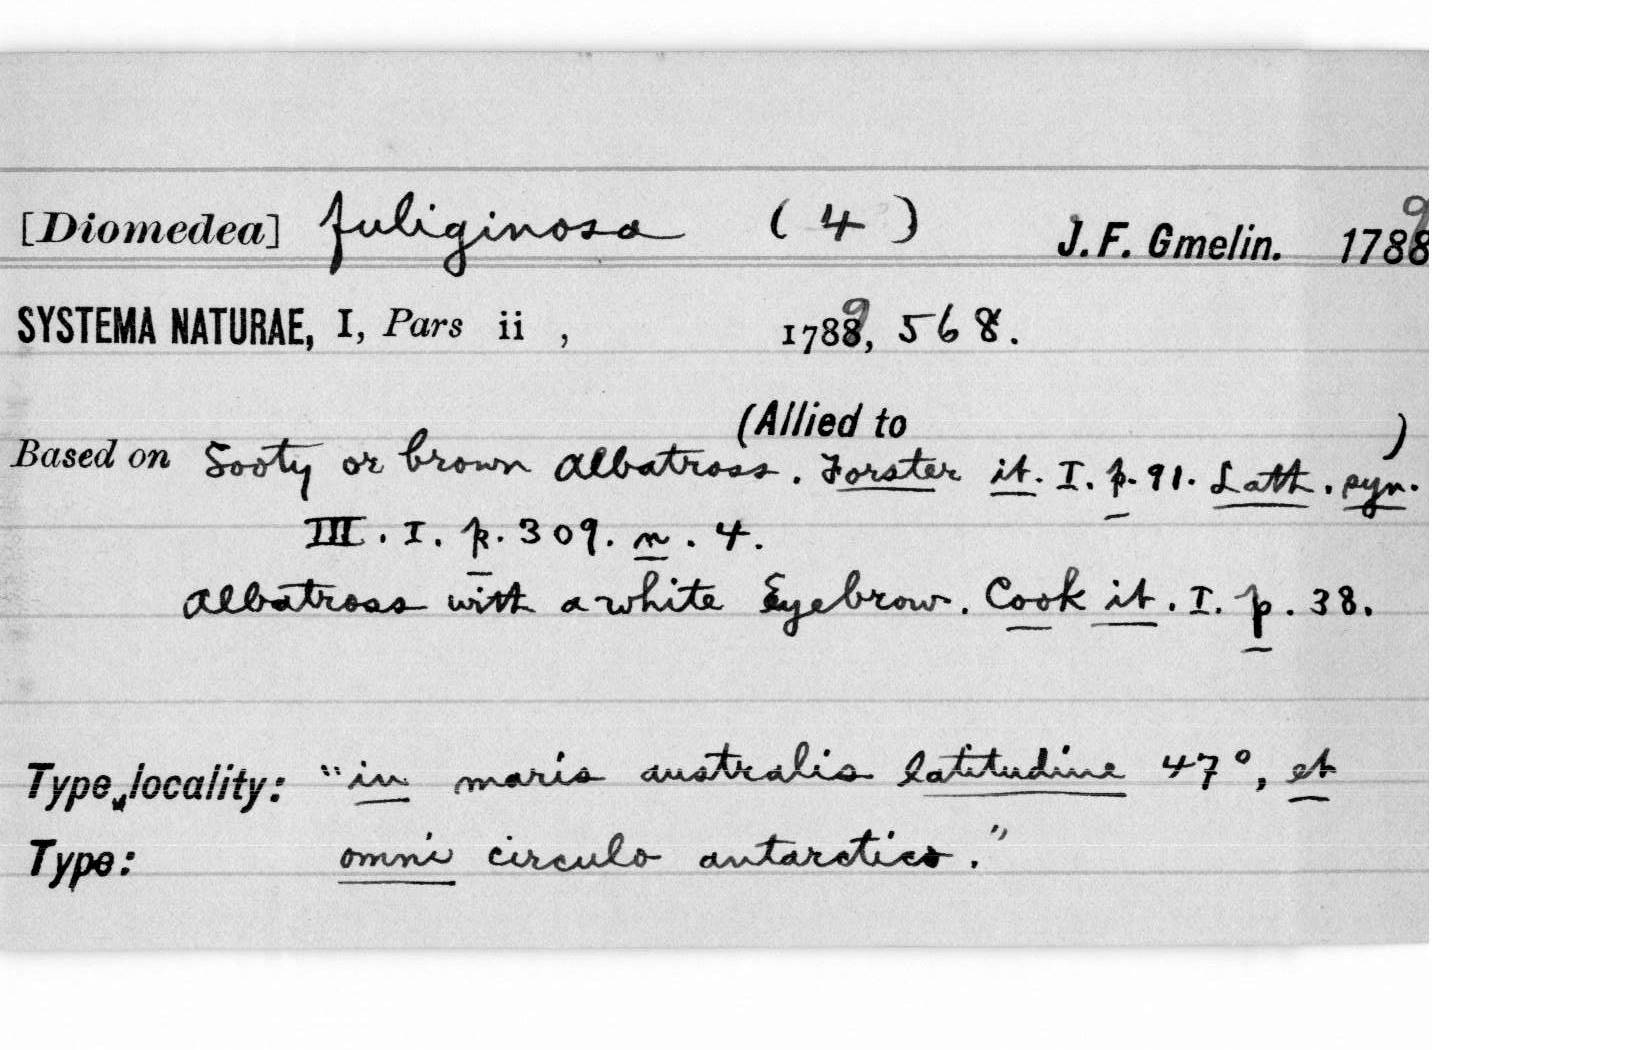 [Diomedea] fuliginosa (4) J. F. Gmelin. 1789
SYSTEMA NATURAE, I, Pars ii , 1789, 568.
(Allied to )
Based on Sooty or brown Albatross. Forster it. I. p. 91. Lath. syn.
III. I. p. 309. n. 4.
Albatross with a white Eyebrow. Cook it. I. p. 38.
Type locality: "in maris australis latitudine 47°, et
Type: omni circulo antarctico."